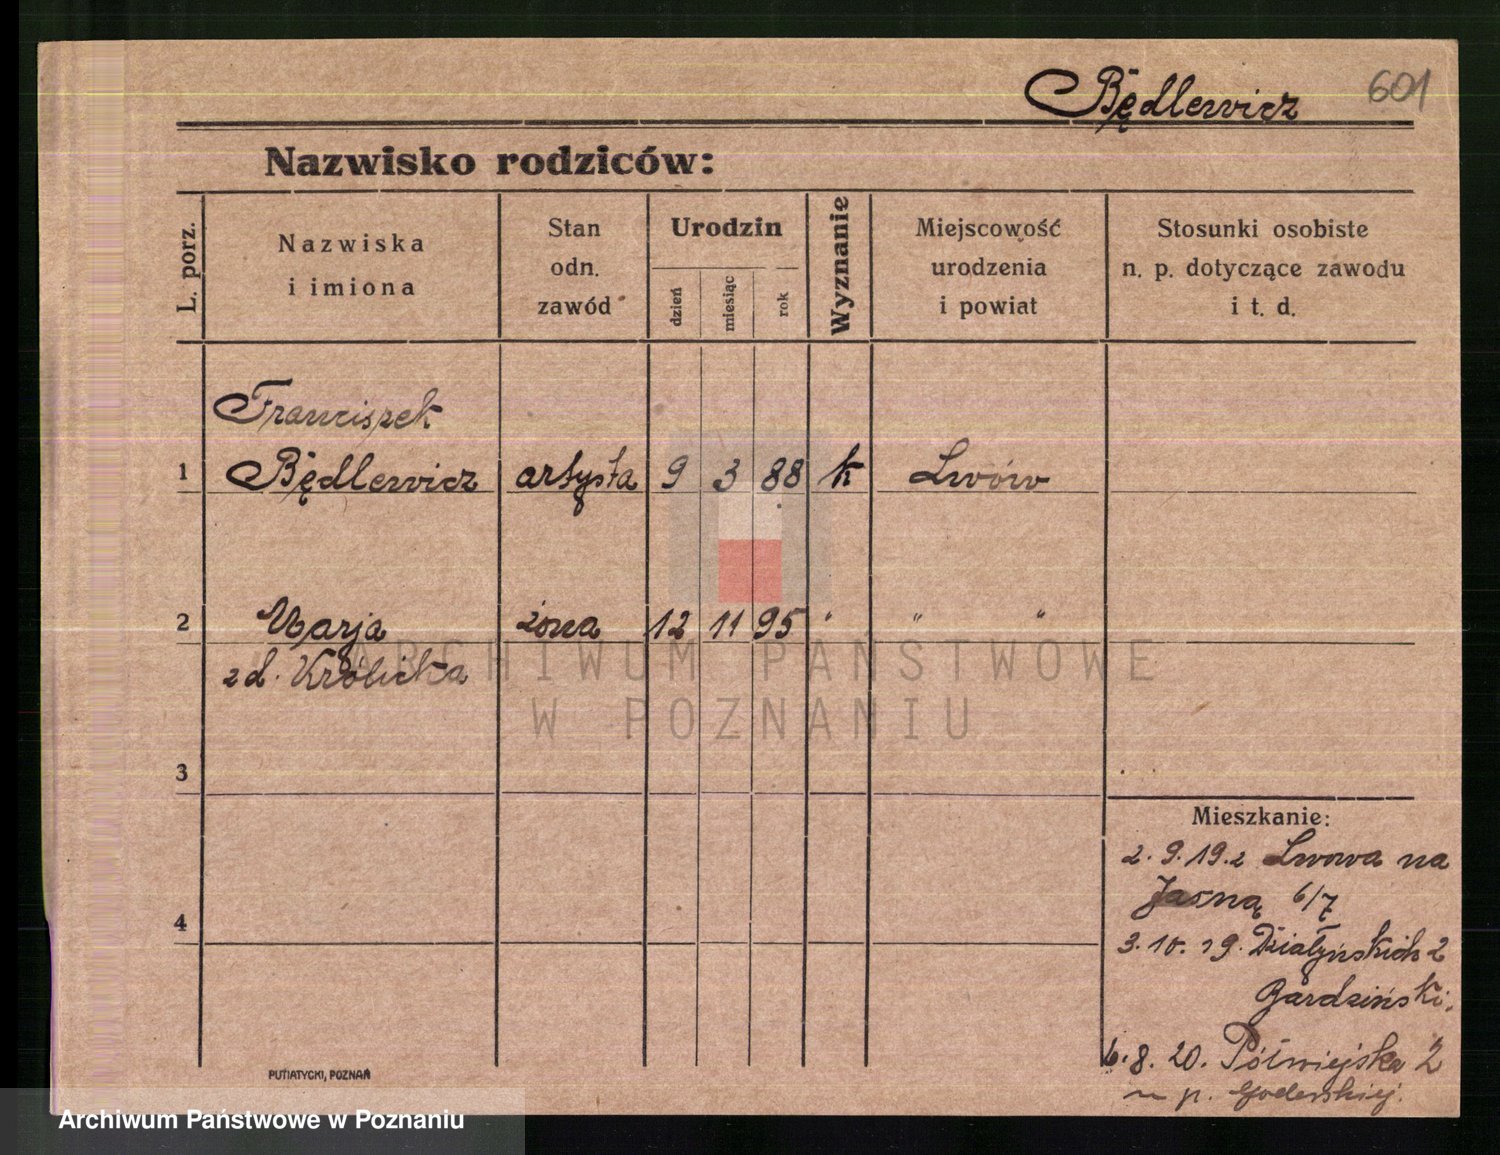 Będlewicz 601
Nazwisko rodziców:
L. porz.
Nazwiska
i imiona
Stan
odn.
zawód
Urodzin
dzień
miesiąc
rok
Wyznanie
Miejscowość
urodzenia
i powiat
Stosunki osobiste
n. p. dotyczące zawodu
i t. d.
Franciszek
1 Będlewicz artysta 9 3 88 k Lwów
2 Marja żona 12 11 95 " " "
z d. Królicka
ARCHIWUM PAŃSTWOWE
W POZNANIU
3
4
Mieszkanie:
2. 9. 19. z Lwowa na
Jasną 6/7
3. 10. 19. Działyńskich 2
Gardziński.
6. 8. 20. Półwiejska 2
p.
PUTIATYCKI, POZNAŃ
Archiwum Państwowe w Poznaniu